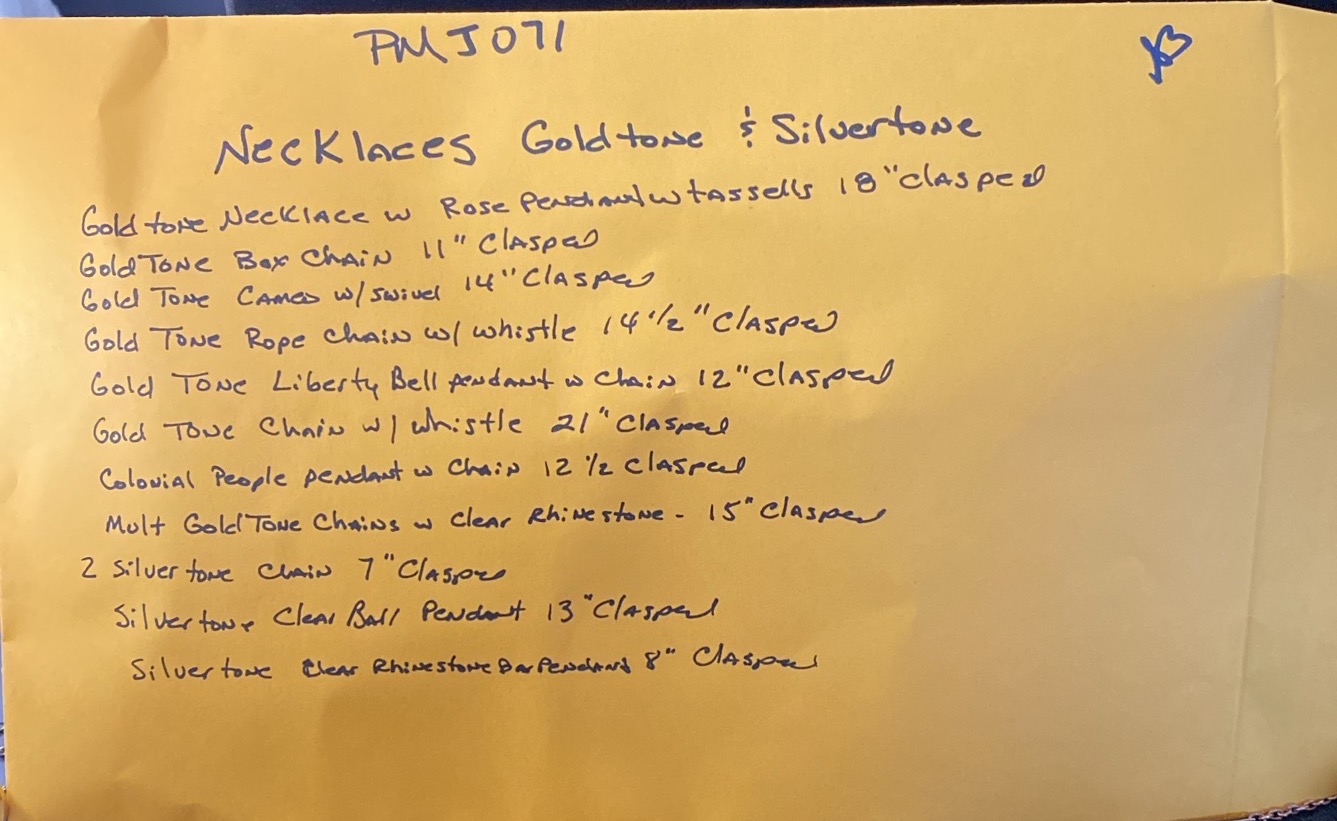 PMJ071
Necklaces Goldtone & Silvertone
Gold tone Necklace w Rose Pendant w tassells 18" clasped
Gold Tone Box Chain 11" Clasped
Gold Tone Cameo w/ swivel 14" Clasped
Gold Tone Rope Chain w/ whistle 14 1/2" Clasped
Gold Tone Liberty Bell pendant w Chain 12" Clasped
Gold Tone Chain w/ whistle 21" Clasped
Colonial People pendant w Chain 12 1/2 Clasped
Mult Gold Tone Chains w Clear Rhinestone - 15" Clasped
2 Silver tone Chain 7" Clasped
Silvertone Clear Ball Pendant 13" Clasped
Silvertone Clear Rhinestone Bar Pendant 8" Clasped